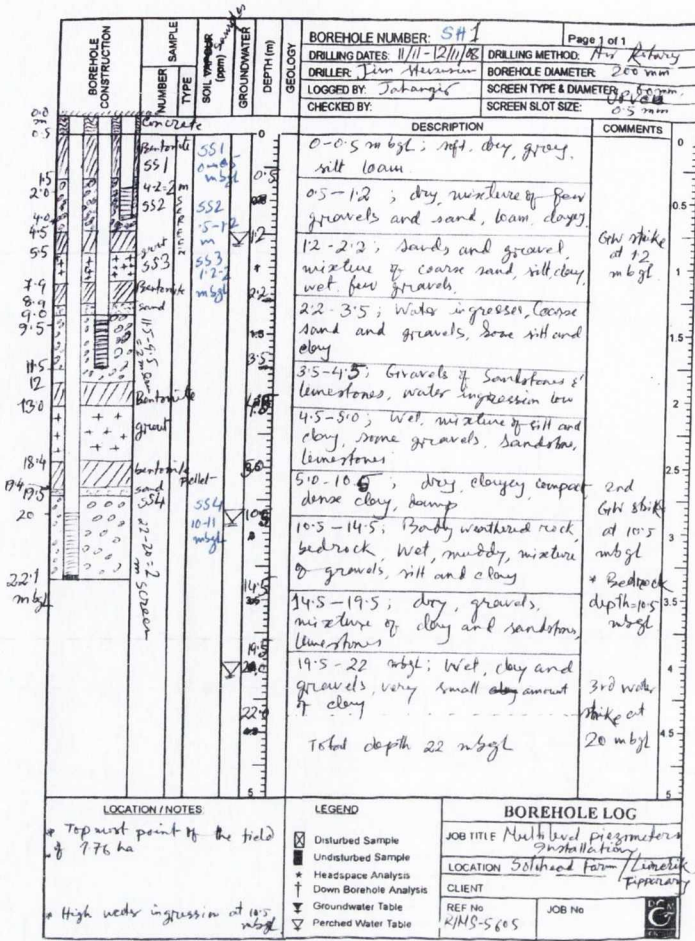 BOREHOLE CONSTRUCTION
SAMPLE
NUMBER
TYPE
SOIL VAPOUR (ppm) Samples
GROUNDWATER
DEPTH (m)
GEOLOGY
BOREHOLE NUMBER: SH1
Page 1 of 1
DRILLING DATES: 11/11-12/11/08
DRILLING METHOD: Air Rotary
DRILLER: Jim
BOREHOLE DIAMETER: 200 mm
LOGGED BY: Jahangir
SCREEN TYPE & DIAMETER: mm
CHECKED BY:
SCREEN SLOT SIZE: 0.5 mm
DESCRIPTION
COMMENTS
0.0
m
0.5
1.5
2.0
4.0
4.5
5.5
7.9
8.9
9.0
9.5
11.5
12
13.0
18.4
19.4
19.5
20
22.1
mbgl
Concrete
Bentonite
SS1
4-2=2 m
SCREEN
SS2
grout
SS3
Bentonite
sand
11.5-9.5
=2 m
Bentonite
grout
bentonite
pellet
sand
SS4
22-20=2
m screen
SS1
0-0.5
mbgl
SS2
.5-1.2
m
SS3
1.2-2
mbgl
SS4
10-11
mbgl
0
0.5
1.2
2.2
3.5
14.5
19.5
22.0
0-0.5 mbgl; soft, dry, grey,
silt loam.
0.5-1.2 ; dry, mixture of few
gravels and sand, loam clayey
1.2-2.2; Sands and gravel,
mixture of coarse sand, silt, clay,
wet. few gravels.
2.2-3.5; Water ingresses, Coarse
sand and gravels, Some silt and
clay
3.5-4.5; Gravels of Sandstones &
limestones, water ingression low
4.5-5.0; Wet, mixture of silt and
clay, some gravels, Sandstone,
limestones
5.0-10.5 ; dry clayey compact
dense clay, damp
10.5-14.5; Badly weathered rock,
bedrock, Wet, muddy, mixture
of gravels, silt and clay
14.5-19.5; dry, gravels,
mixture of clay and sandstone,
limestones
19.5-22 mbgl; Wet, clay and
gravels, very small amount
of clay
Total depth 22 mbgl
GW strike
at 1.2
mbgl
2nd
GW strike
at 10.5
mbgl
* Bedrock
depth=10.5
mbgl
3rd water
strike at
20 mbgl
0
0.5
1
1.5
2
2.5
3
3.5
4
4.5
5
5
LOCATION / NOTES
* Top most point of the field
of 7.76 ha
* High water ingression at 10.5
mbgl
LEGEND
Disturbed Sample
Undisturbed Sample
Headspace Analysis
Down Borehole Analysis
Groundwater Table
Perched Water Table
BOREHOLE LOG
JOB TITLE Multilevel piezometers
Installation
LOCATION Solohead Farm / Limerick
Tipperary
CLIENT
REF No
RIMS-5605
JOB No